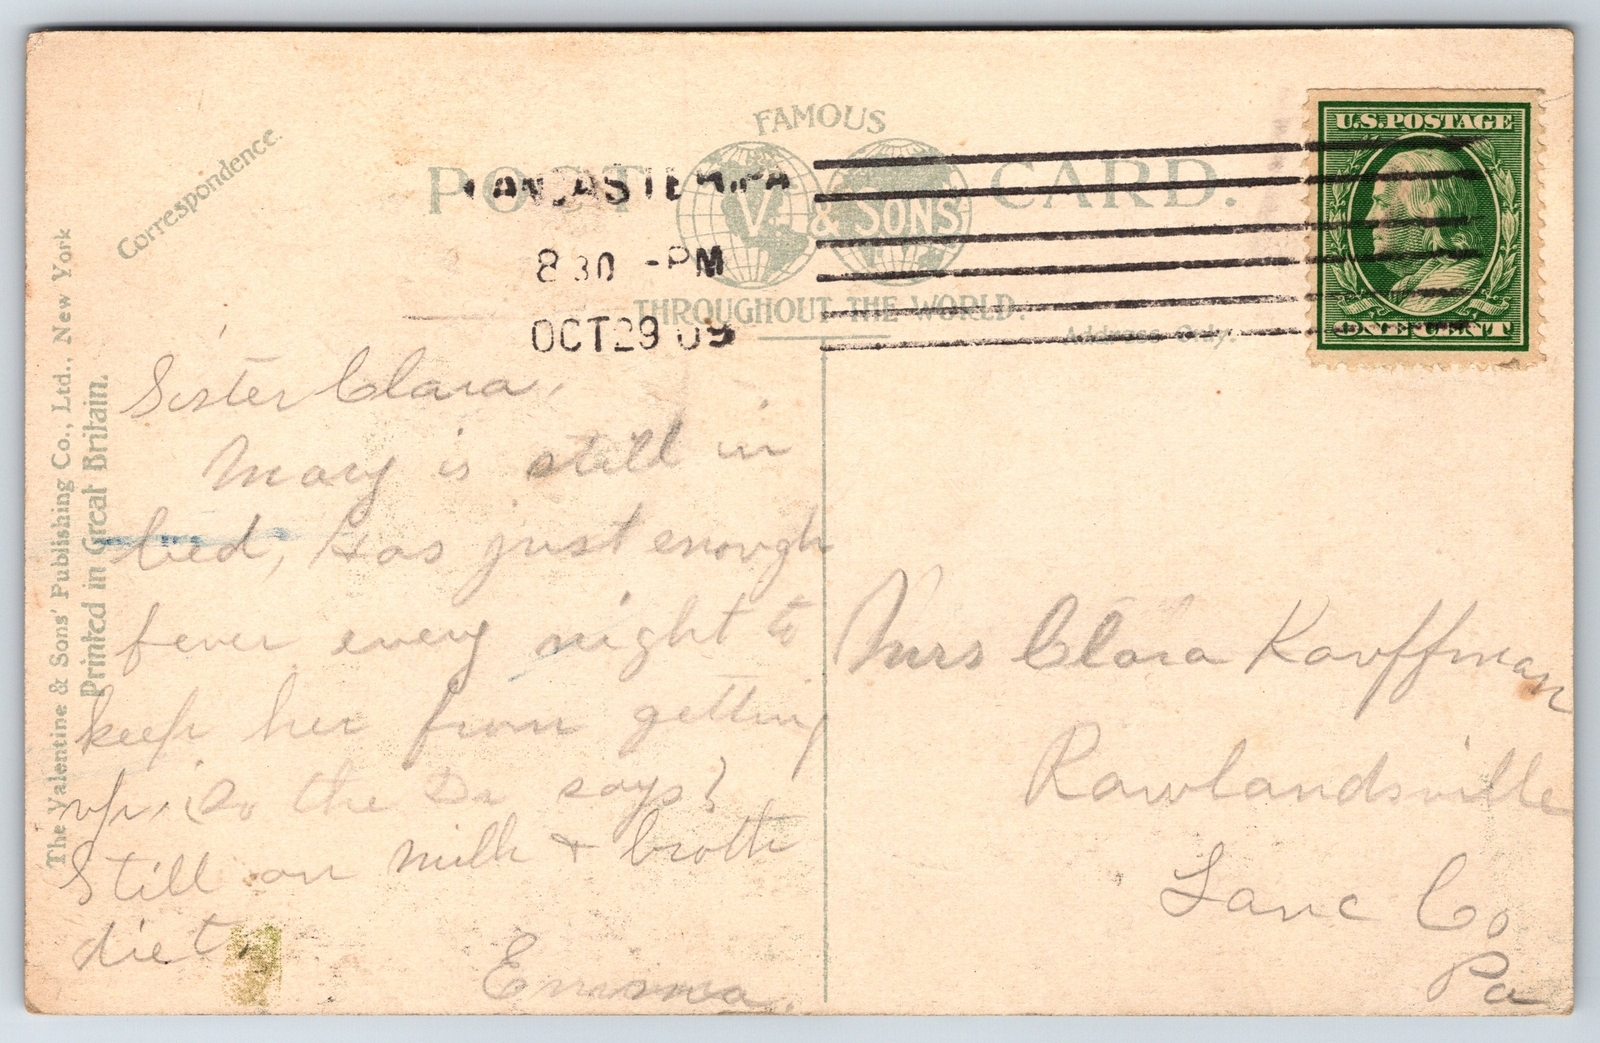 FAMOUS
POST CARD.
V. & SONS
THROUGHOUT THE WORLD.
Correspondence.
Address Only.
The Valentine & Sons' Publishing Co., Ltd., New York
Printed in Great Britain.
LANCASTER, PA
8 30 -PM
OCT 29 09
U.S. POSTAGE
ONE CENT
Sister Clara,
Mary is still in
bed, Has just enough
fever every night to
keep her from getting
up. (So the Dr says)
Still on milk + broth
diet.
Emma.
Mrs Clara Kauffman
Rawlandsville
Lanc Co
Pa